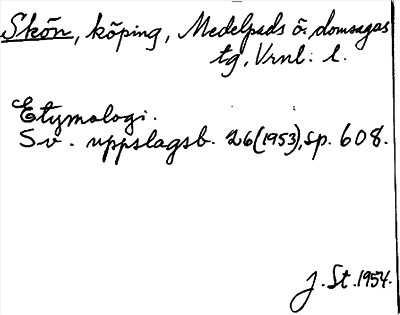 Skön, köping, Medelpads ö. domsagas
tg, Vrnl. l.
Etymologi.
Sv. uppslagsb. 26(1953), sp. 608.
J. St. 1954.